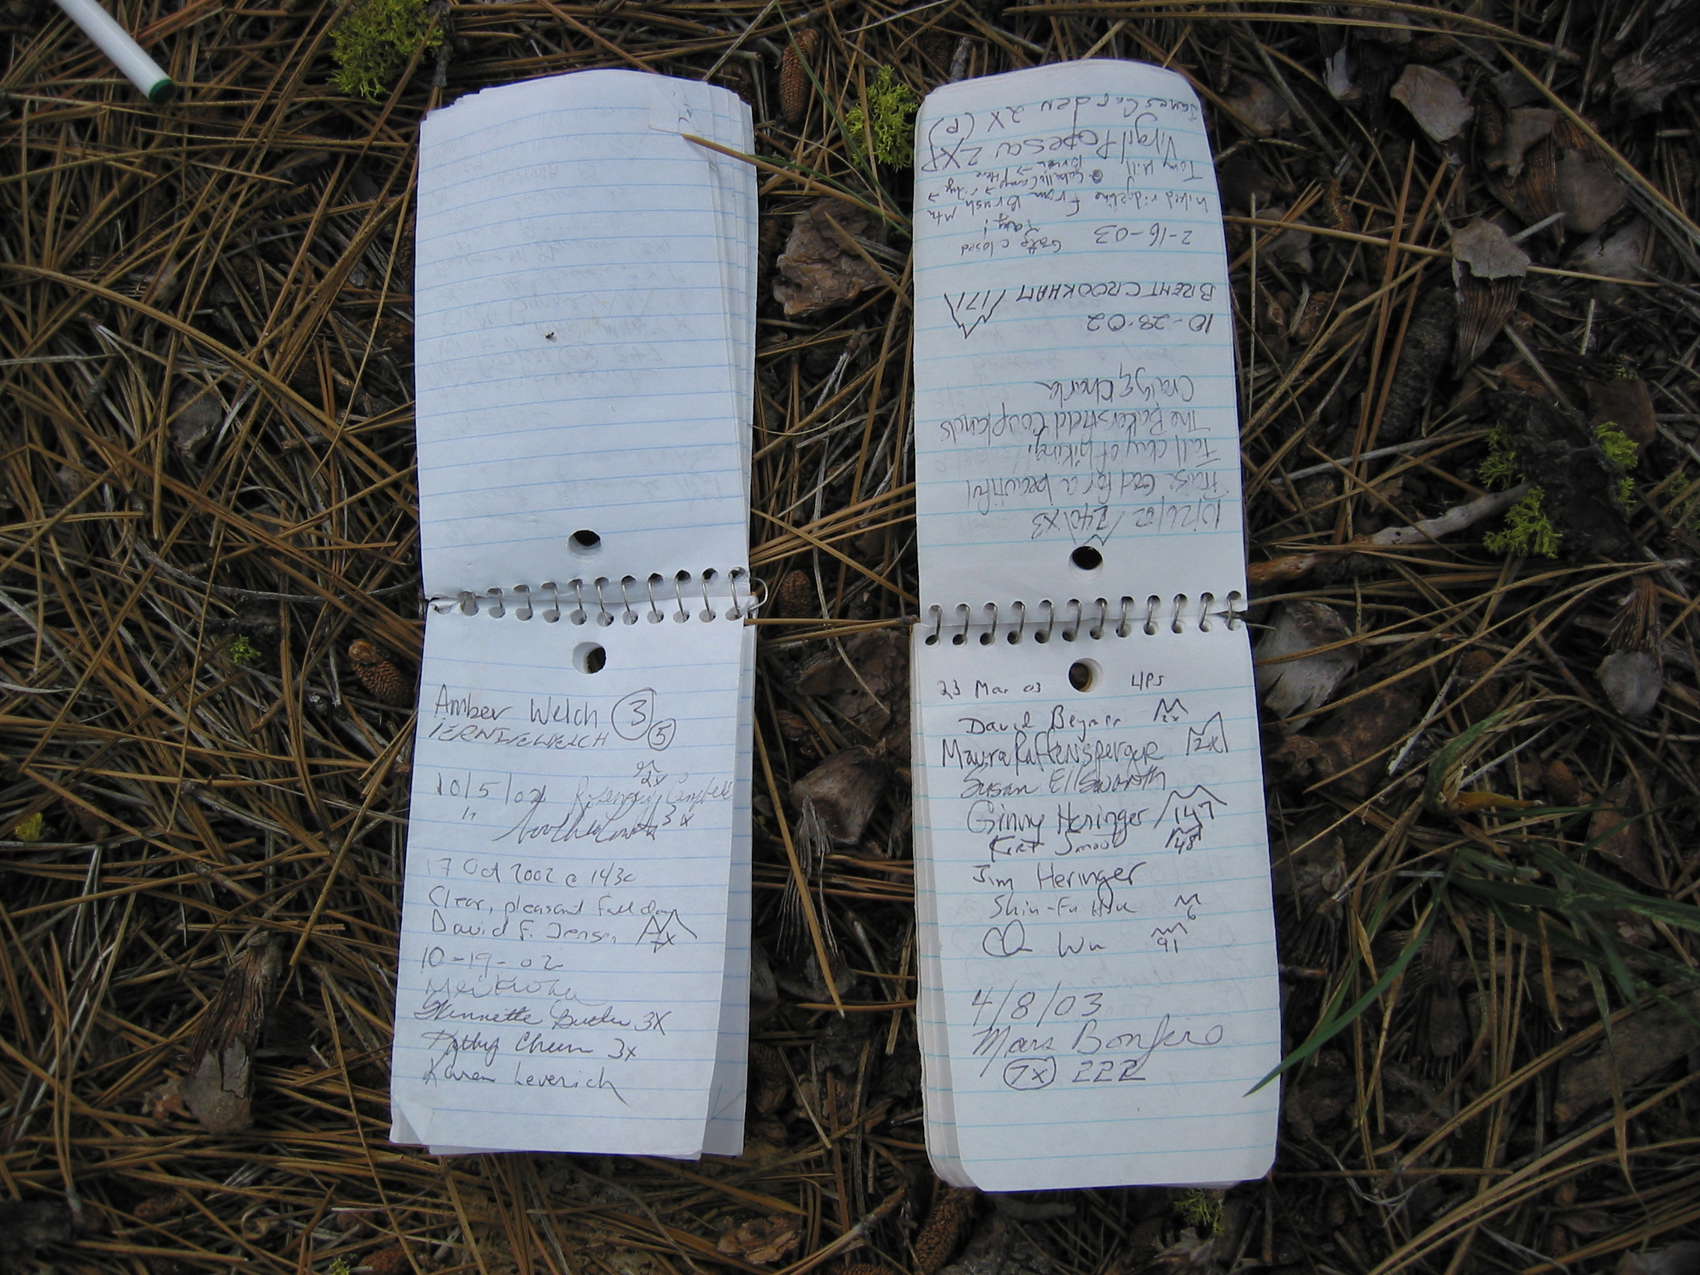 Amber Welch 3
VERNIE WELCH 5
10/5/02 Rosemary Campbell 2x
" 3x
17 Oct 2002 @ 1430
Clear, pleasant fall day
David F. Jensen 7x
10-19-02
Buder 3X
Kathy Cheun 3x
Karen Leverich
10/26/02 240 X3
Praise God for a beautiful
Fall day of hiking!
The Bakersfield Couplands
Craig & Charla
10-28-02
BRENT CROOKHAM /171
2-16-03 Gate closed
hiked ridgeline from Brush Mtn
Tom Hill
Virgil Popescu 2X
James Carden 2X (P)
23 Mar 03 LPS
David Beymer 2x
Maura Raffensperger 2x
Susan Ellsworth
Ginny Heringer 147
Kirt Smoot 48
Jim Heringer
Shin-Fu Hsu 6
CQ Wu 91
4/8/03
Mars Bonfire
7x 222